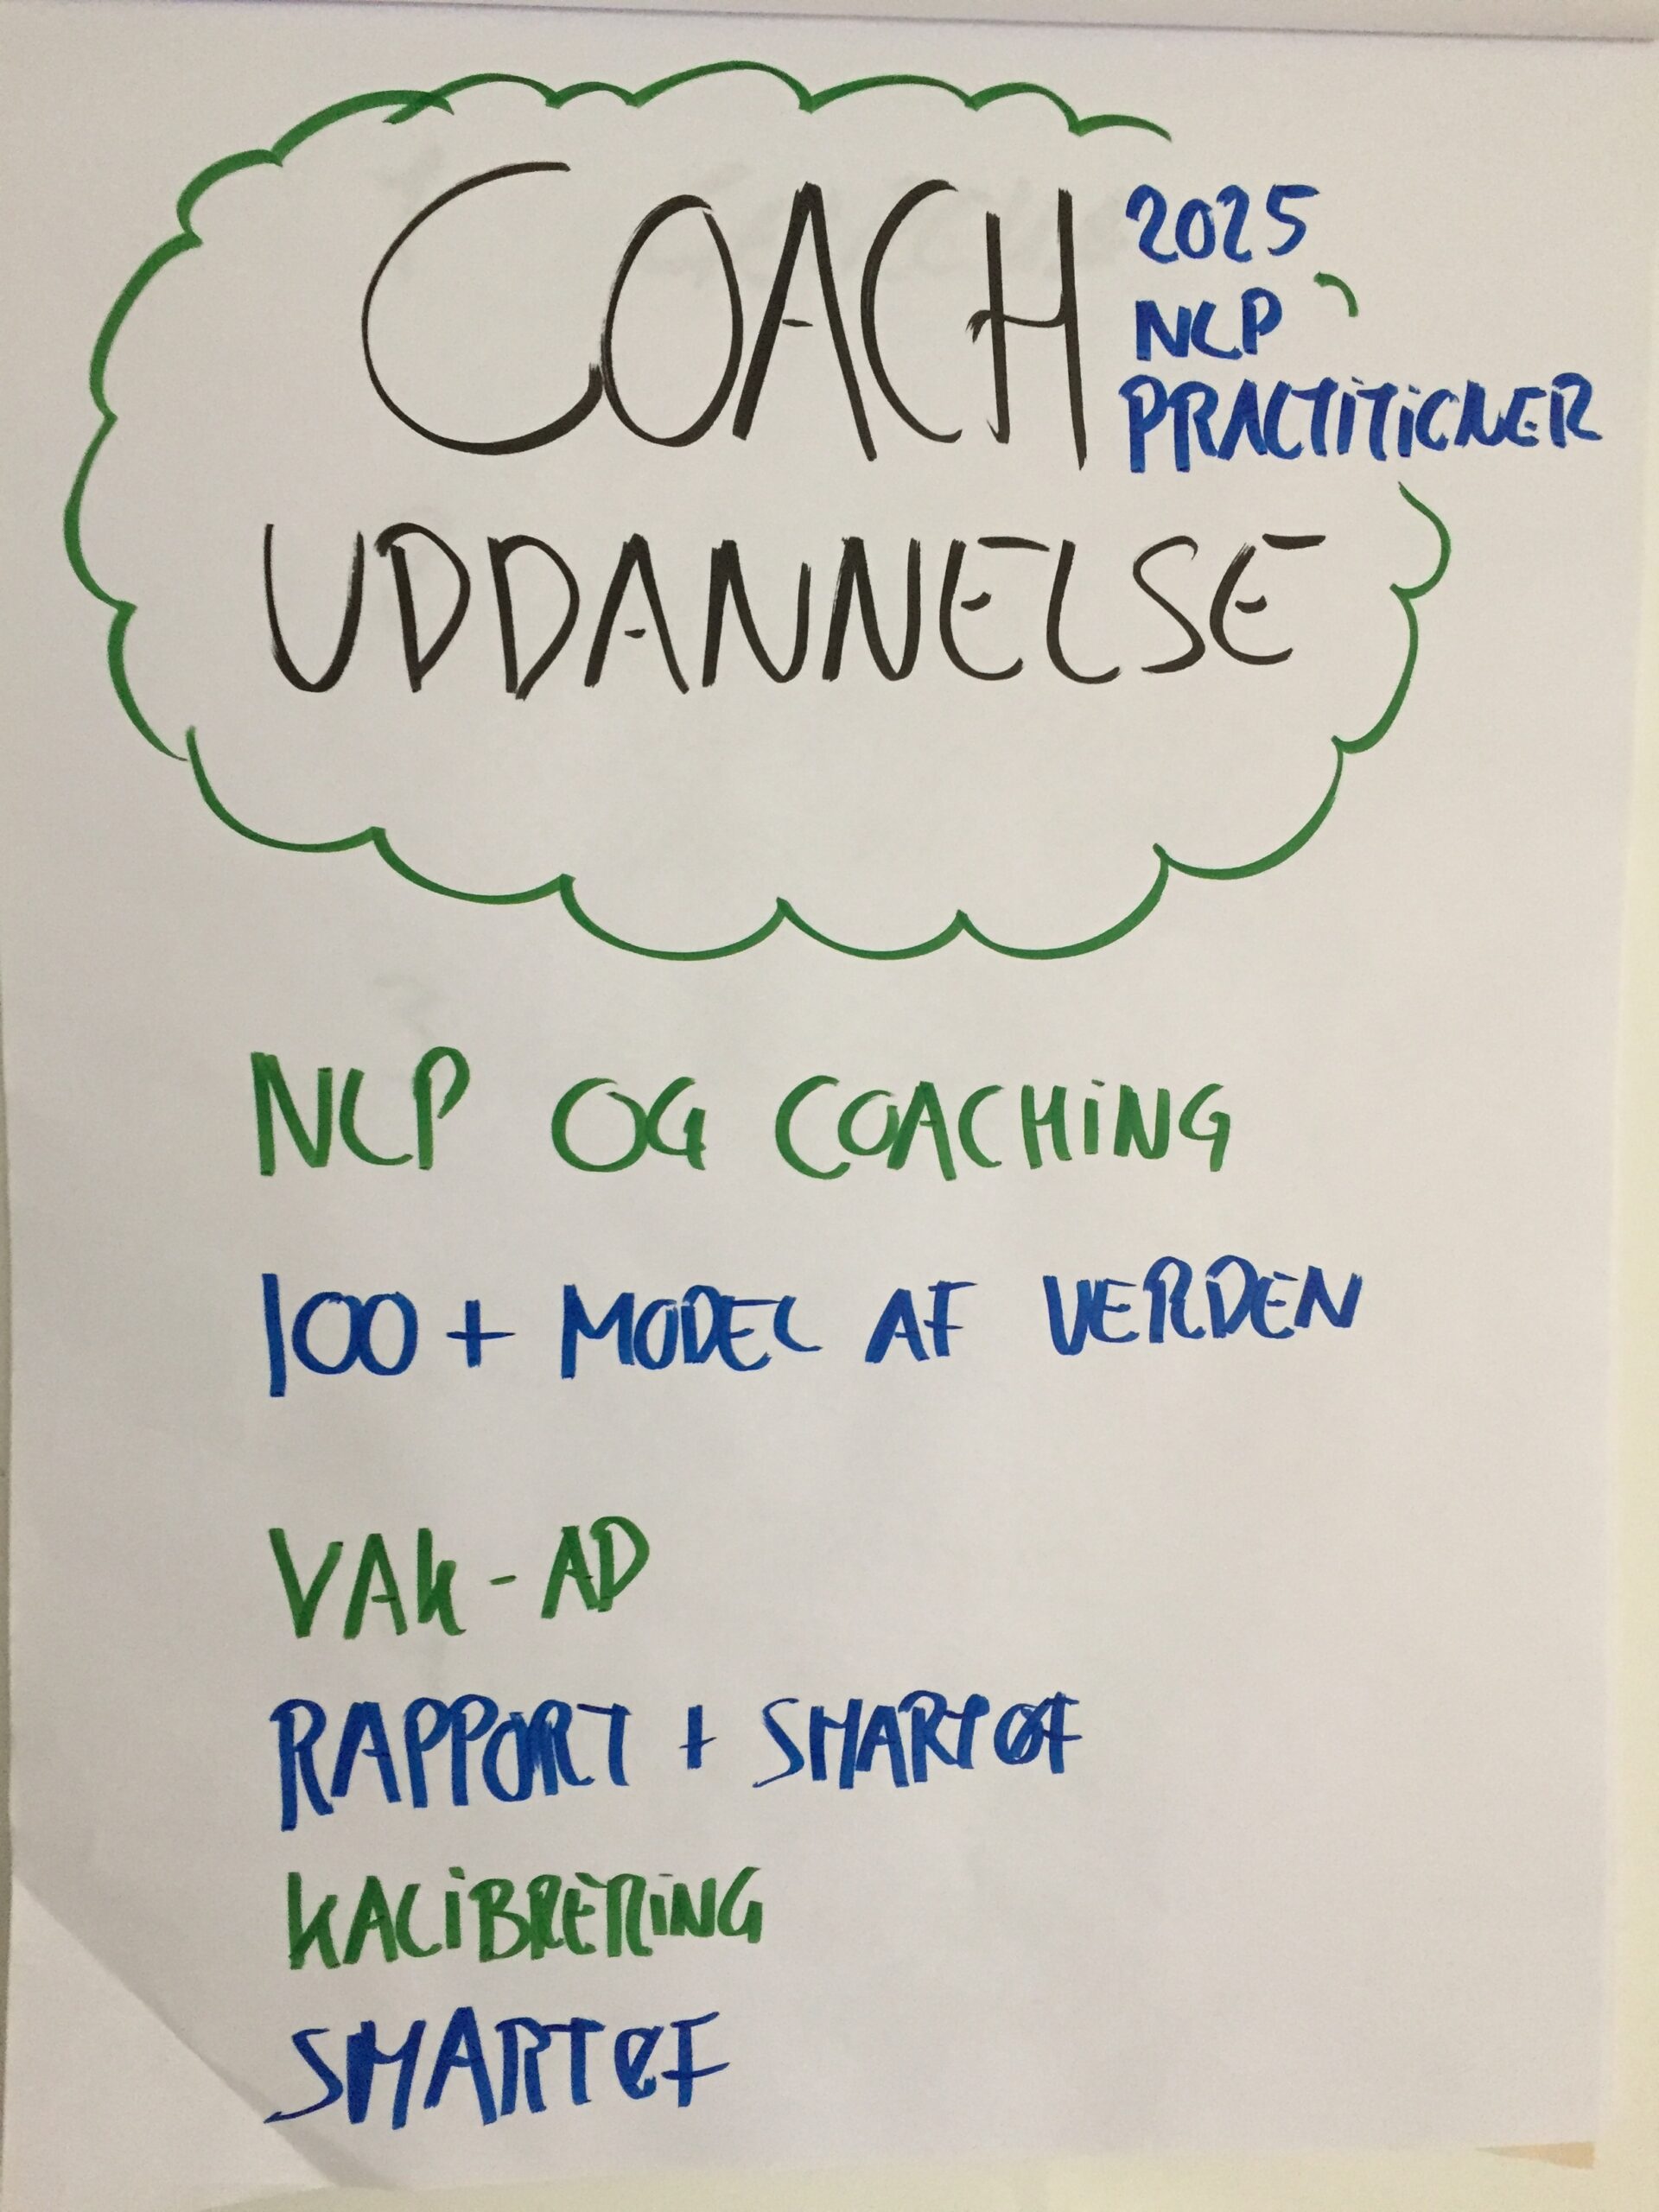 COACH
2025
NLP
PRACTITIONER
UDDANNELSE
NLP OG COACHING
100 + MODEL AF VERDEN
VAK - AD
RAPPORT + SMARTØF
KALIBRERING
SMARTØF